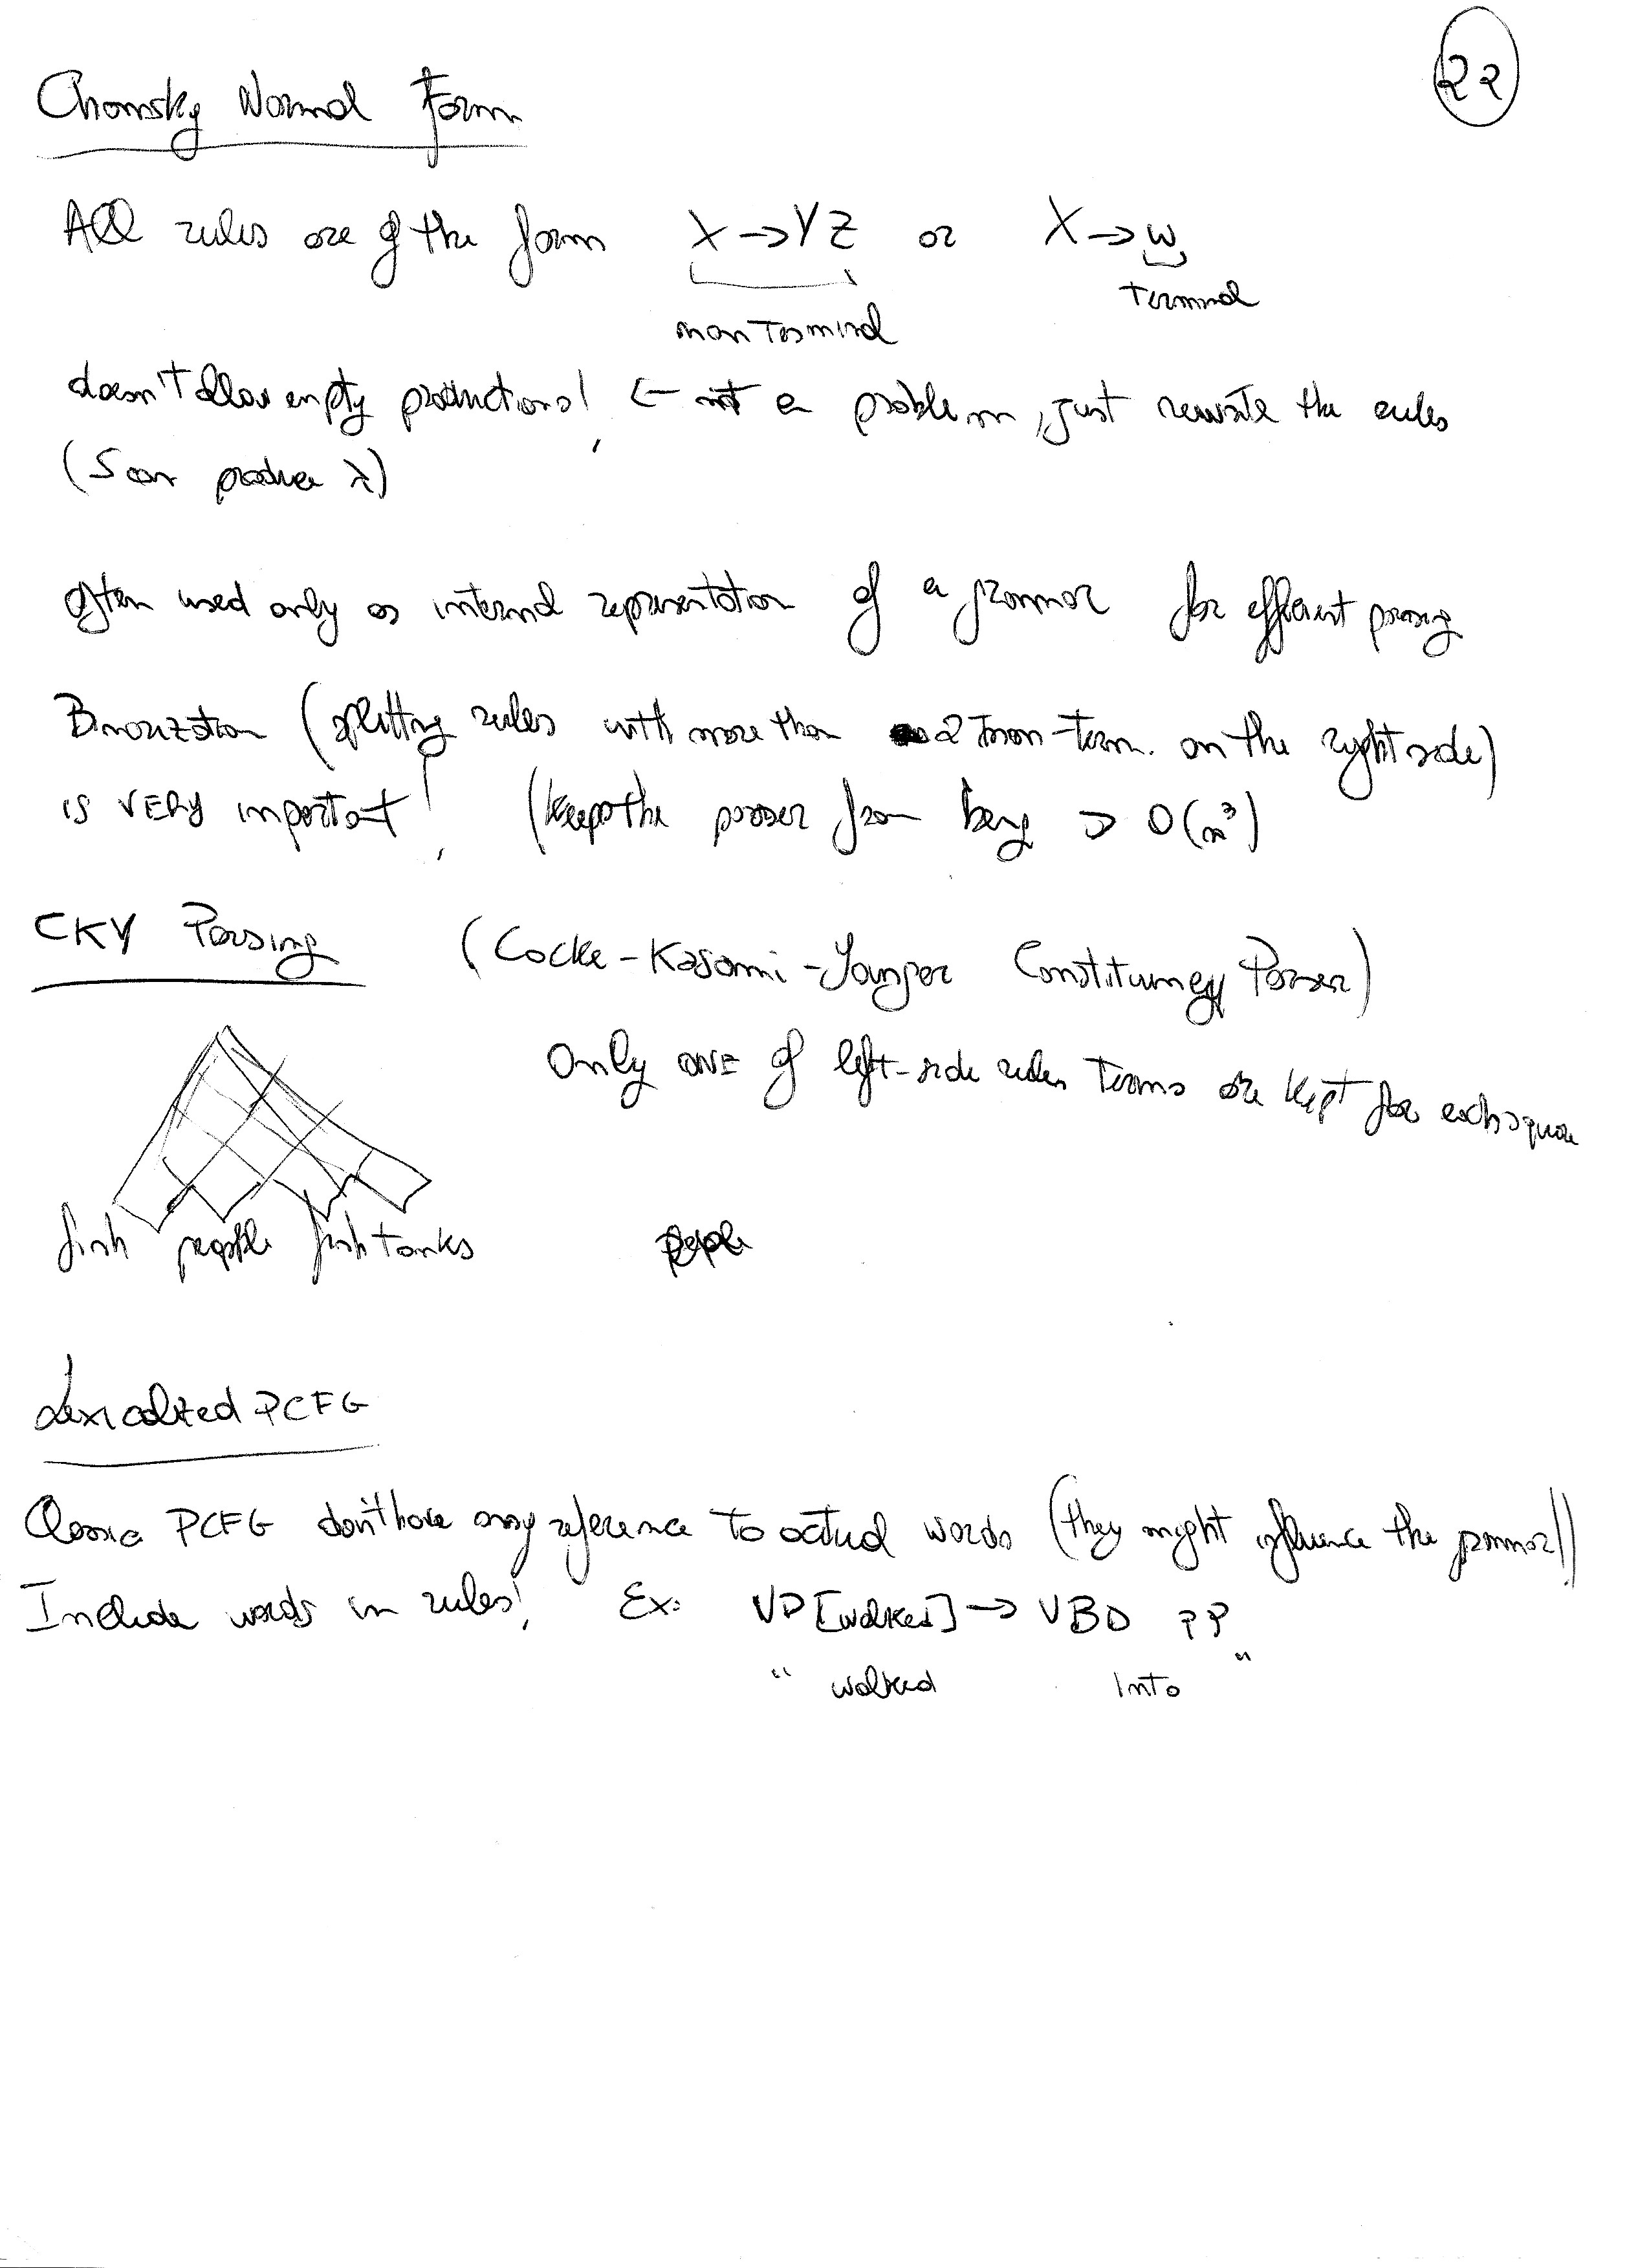 22
Chomsky Normal Form
All rules are of the form X → Y Z or X → w
terminal
non terminal
doesn't allow empty productions! ← not a problem, just rewrite the rules
(S can produce λ)
often used only as internal representation of a grammar for efficient parsing
Binarization (splitting rules with more than 2 non-term. on the right side)
is VERY important! (keeps the parser from being > O(n³)
CKY Parsing (Cocke-Kasami-Younger Constituency Parser)
Only ONE of left-side rules terms are kept for each square
fish people fish tanks
Lexicalized PCFG
Classic PCFG don't have any reference to actual words (they might influence the grammar!)
Include words in rules! Ex: VP[walked] → VBD PP
" walked into "